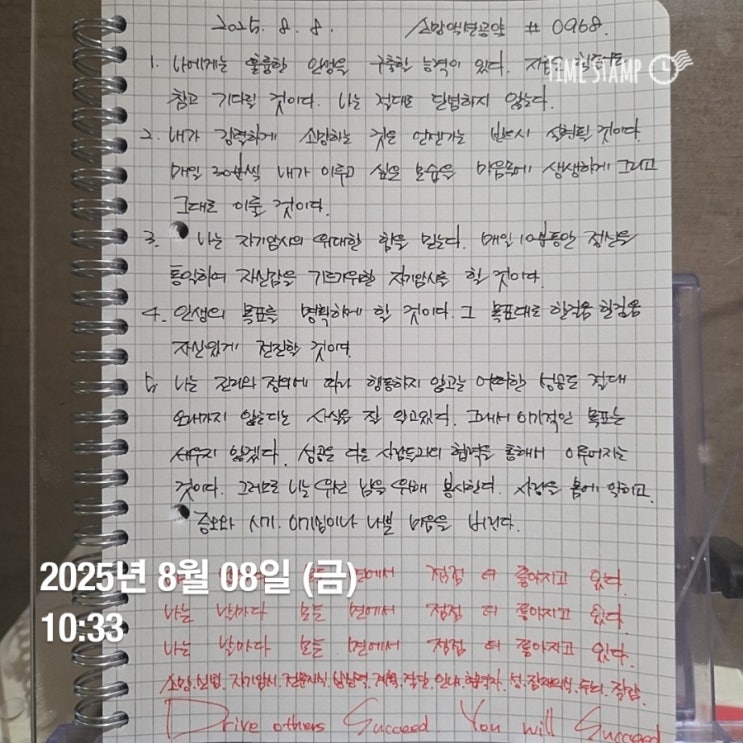 2025. 8. 8. 소망액션공약 # 0968.
1. 나에게는 훌륭한 인생을 구축할 능력이 있다.
TIME STAMP
참고 기다릴 것이다. 나는 절대로 단념하지 않는다.
2. 내가 강력하게 소망하는 것은 언젠가는 반드시 실현될 것이다.
매일 30분씩 내가 이루고 싶은 모습을 마음속에 생생하게 그리고
그대로 이룰 것이다.
3. 나는 자기암시의 위대한 힘을 믿는다. 매일 10분동안 정신을
통일하여 자신감을 기르기위한 자기암시를 할 것이다.
4. 인생의 목표를 명확하게 할 것이다. 그 목표대로 한걸음 한걸음
자신있게 전진할 것이다
5 나는 진리와 정의에 따라 행동하지 않고는 어떠한 성공도 절대
오래가지 않는다는 사실을 잘 알고있다. 그래서 이기적인 목표는
세우지 않겠다. 성공은 다른 사람들과의 협력을 통해서 이루어지는
것이다. 그러므로 나는 우선 남을 위해 봉사한다. 사랑을 몸에 익히고.
증오와 시기. 이기심이나 나쁜 마음을 버린다.
면에서 점점 더 좋아지고 있다.
2025년 8월 08일 (금)
나는 날마다 모든 면에서 점점 더 좋아지고 있다.
10:33
나는 날마다 모든 면에서 점점 더 좋아지고 있다.
소망.신념.자기암시.전문지식.상상력.계획.결단.인내.협력자.성.잠재의식.두뇌.육감.
Drive others Succeed. You will Succeed